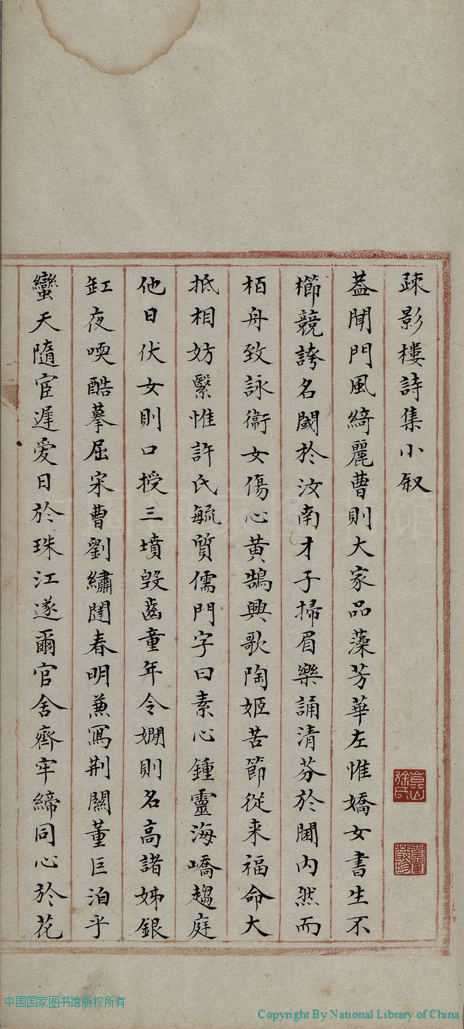 疎影樓詩集小敘
蓋聞門風綺麗曹則大家品藻芳華左惟嬌女書生不
櫛競誇名閨於汝南才子掃眉樂誦清芬於閫內然而
栢舟致詠衛女傷心黃鵠興歌陶姬苦節從來福命大
抵相妨繄惟許氏毓質儒門字曰素心鍾靈海嶠趨庭
他日伏女則口授三墳毀齒童年令嫻則名高諸姊銀
缸夜喚酷摹屈宋曹劉繡闥春明兼寫荆關董巨泊乎
蠻天隨宦遲愛日於珠江遂爾官舍齊牢締同心於花
中国国家图书馆版权所有
Copyright By National Library of China